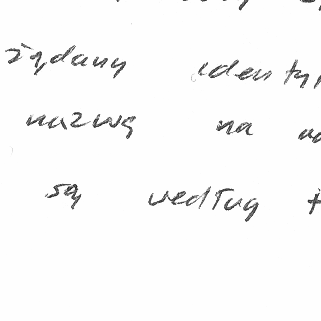 żądany identy
nazwą na
są według